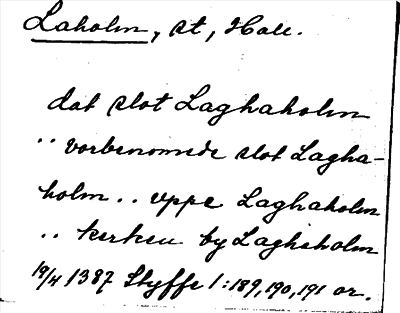 Laholm, st, Hall.
dat slot Laghaholm
.. vorbenomede slot Lagha-
holm .. uppe Laghaholm
.. kerken by Laghaholm
19/4 1387 Styffe 1:189,190,191 or.